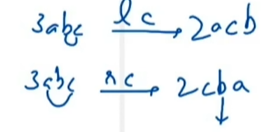 3abc lc → 2acb
3abc rc → 2cba